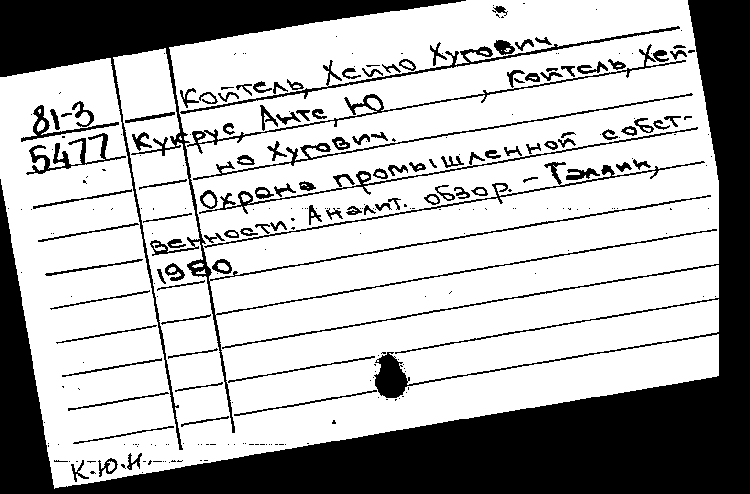 Койтель, Хейно Хугович.
81-3
5477
Кукрус, Антс, Ю , Койтель, Хей-
но Хугович.
Охрана промышленной собст-
венности: Аналит. обзор. - Таллин,
1980.
К.Ю.Н.